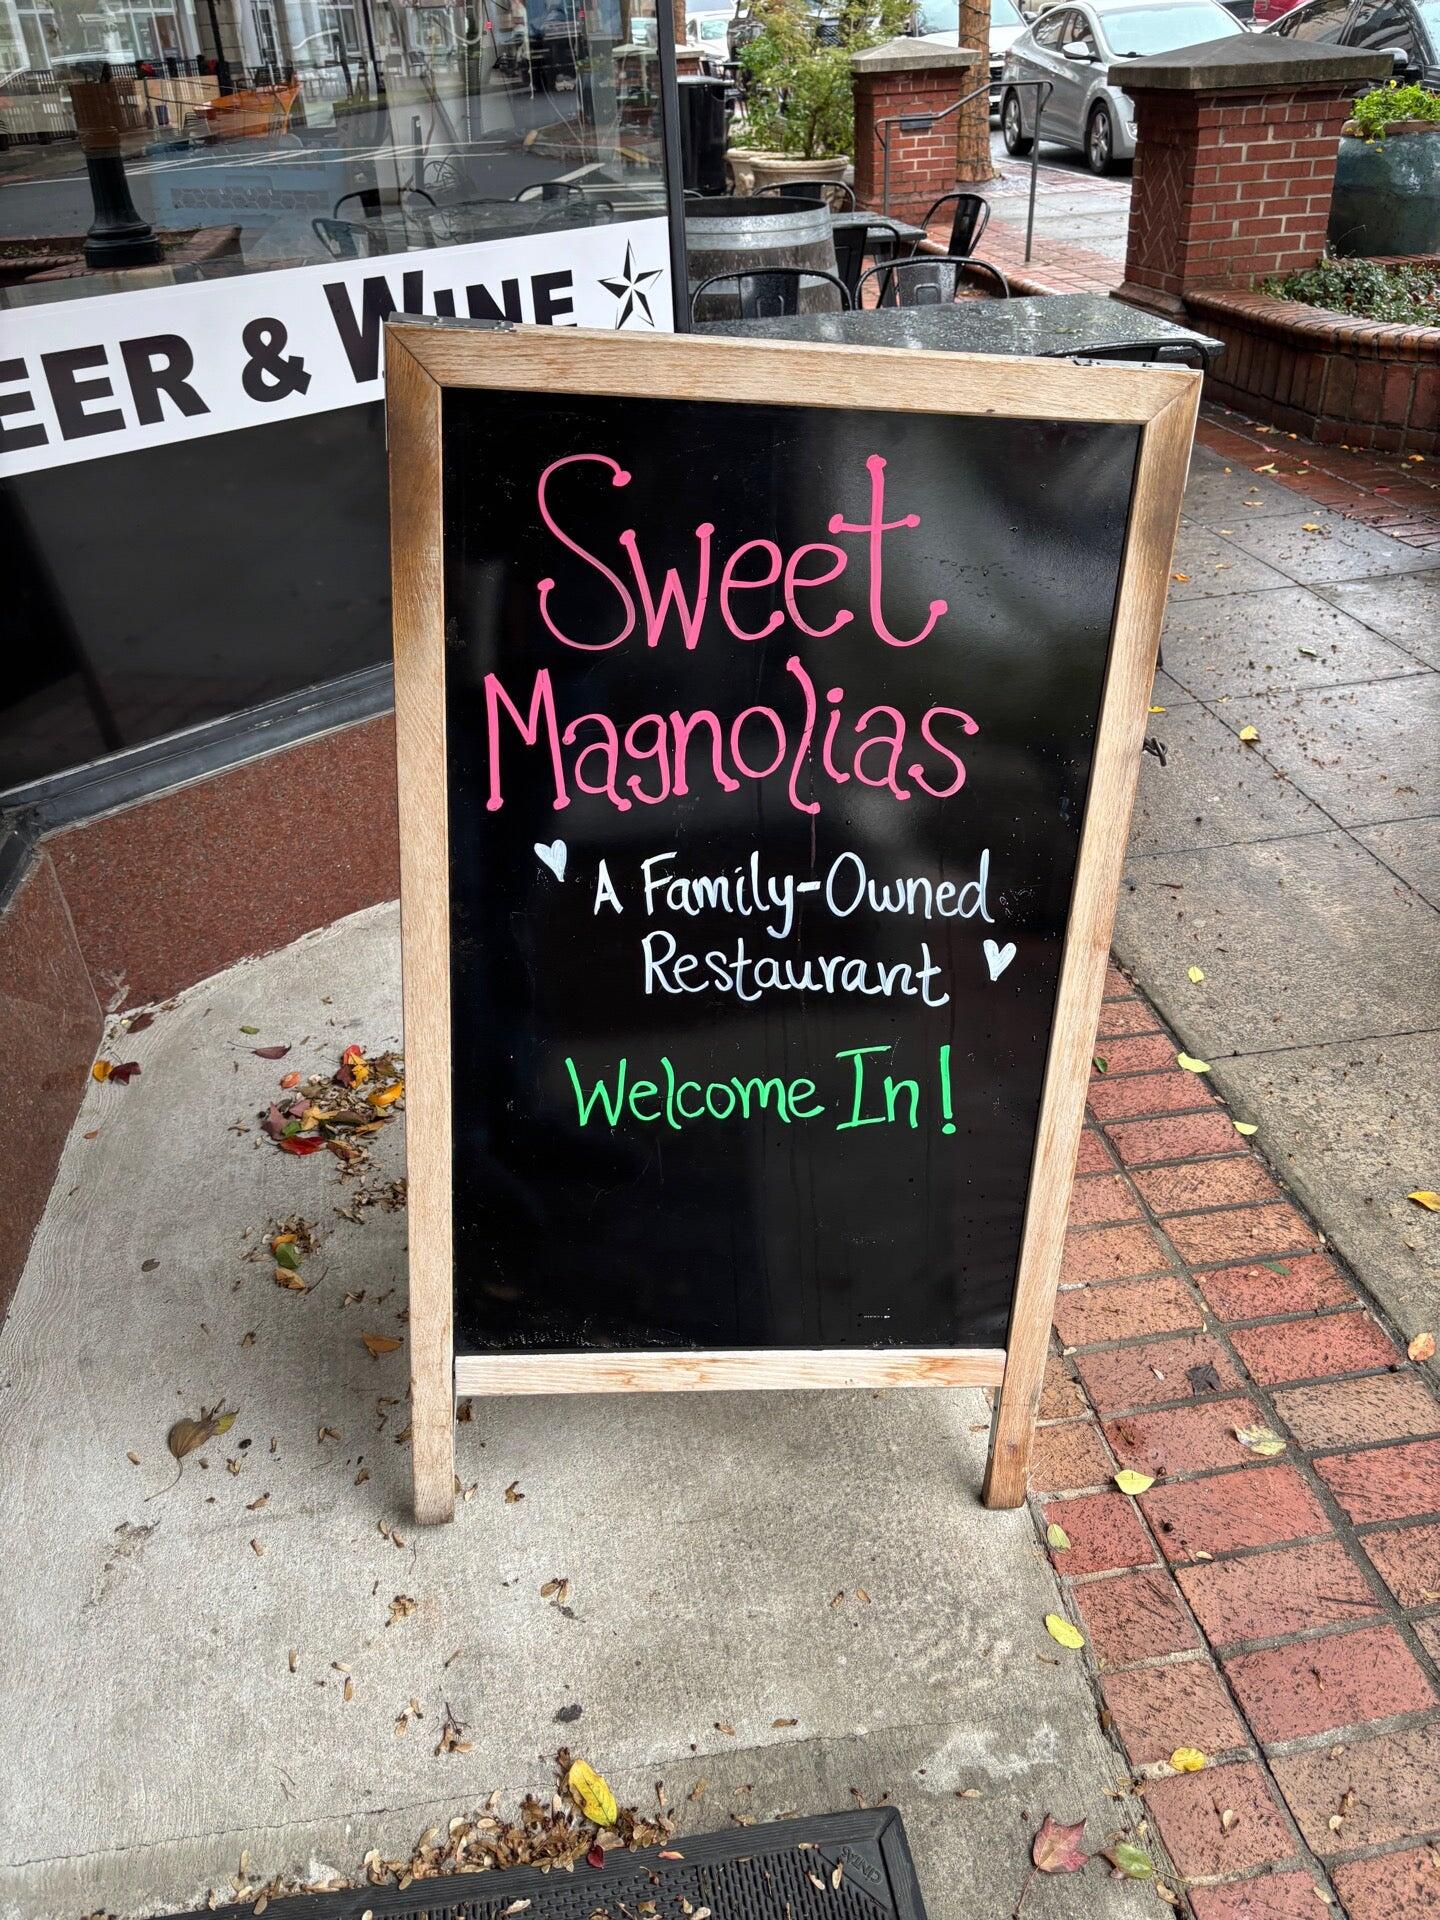 EER & WINE
Sweet
Magnolias
A Family-Owned
Restaurant
Welcome In!
CINTAS